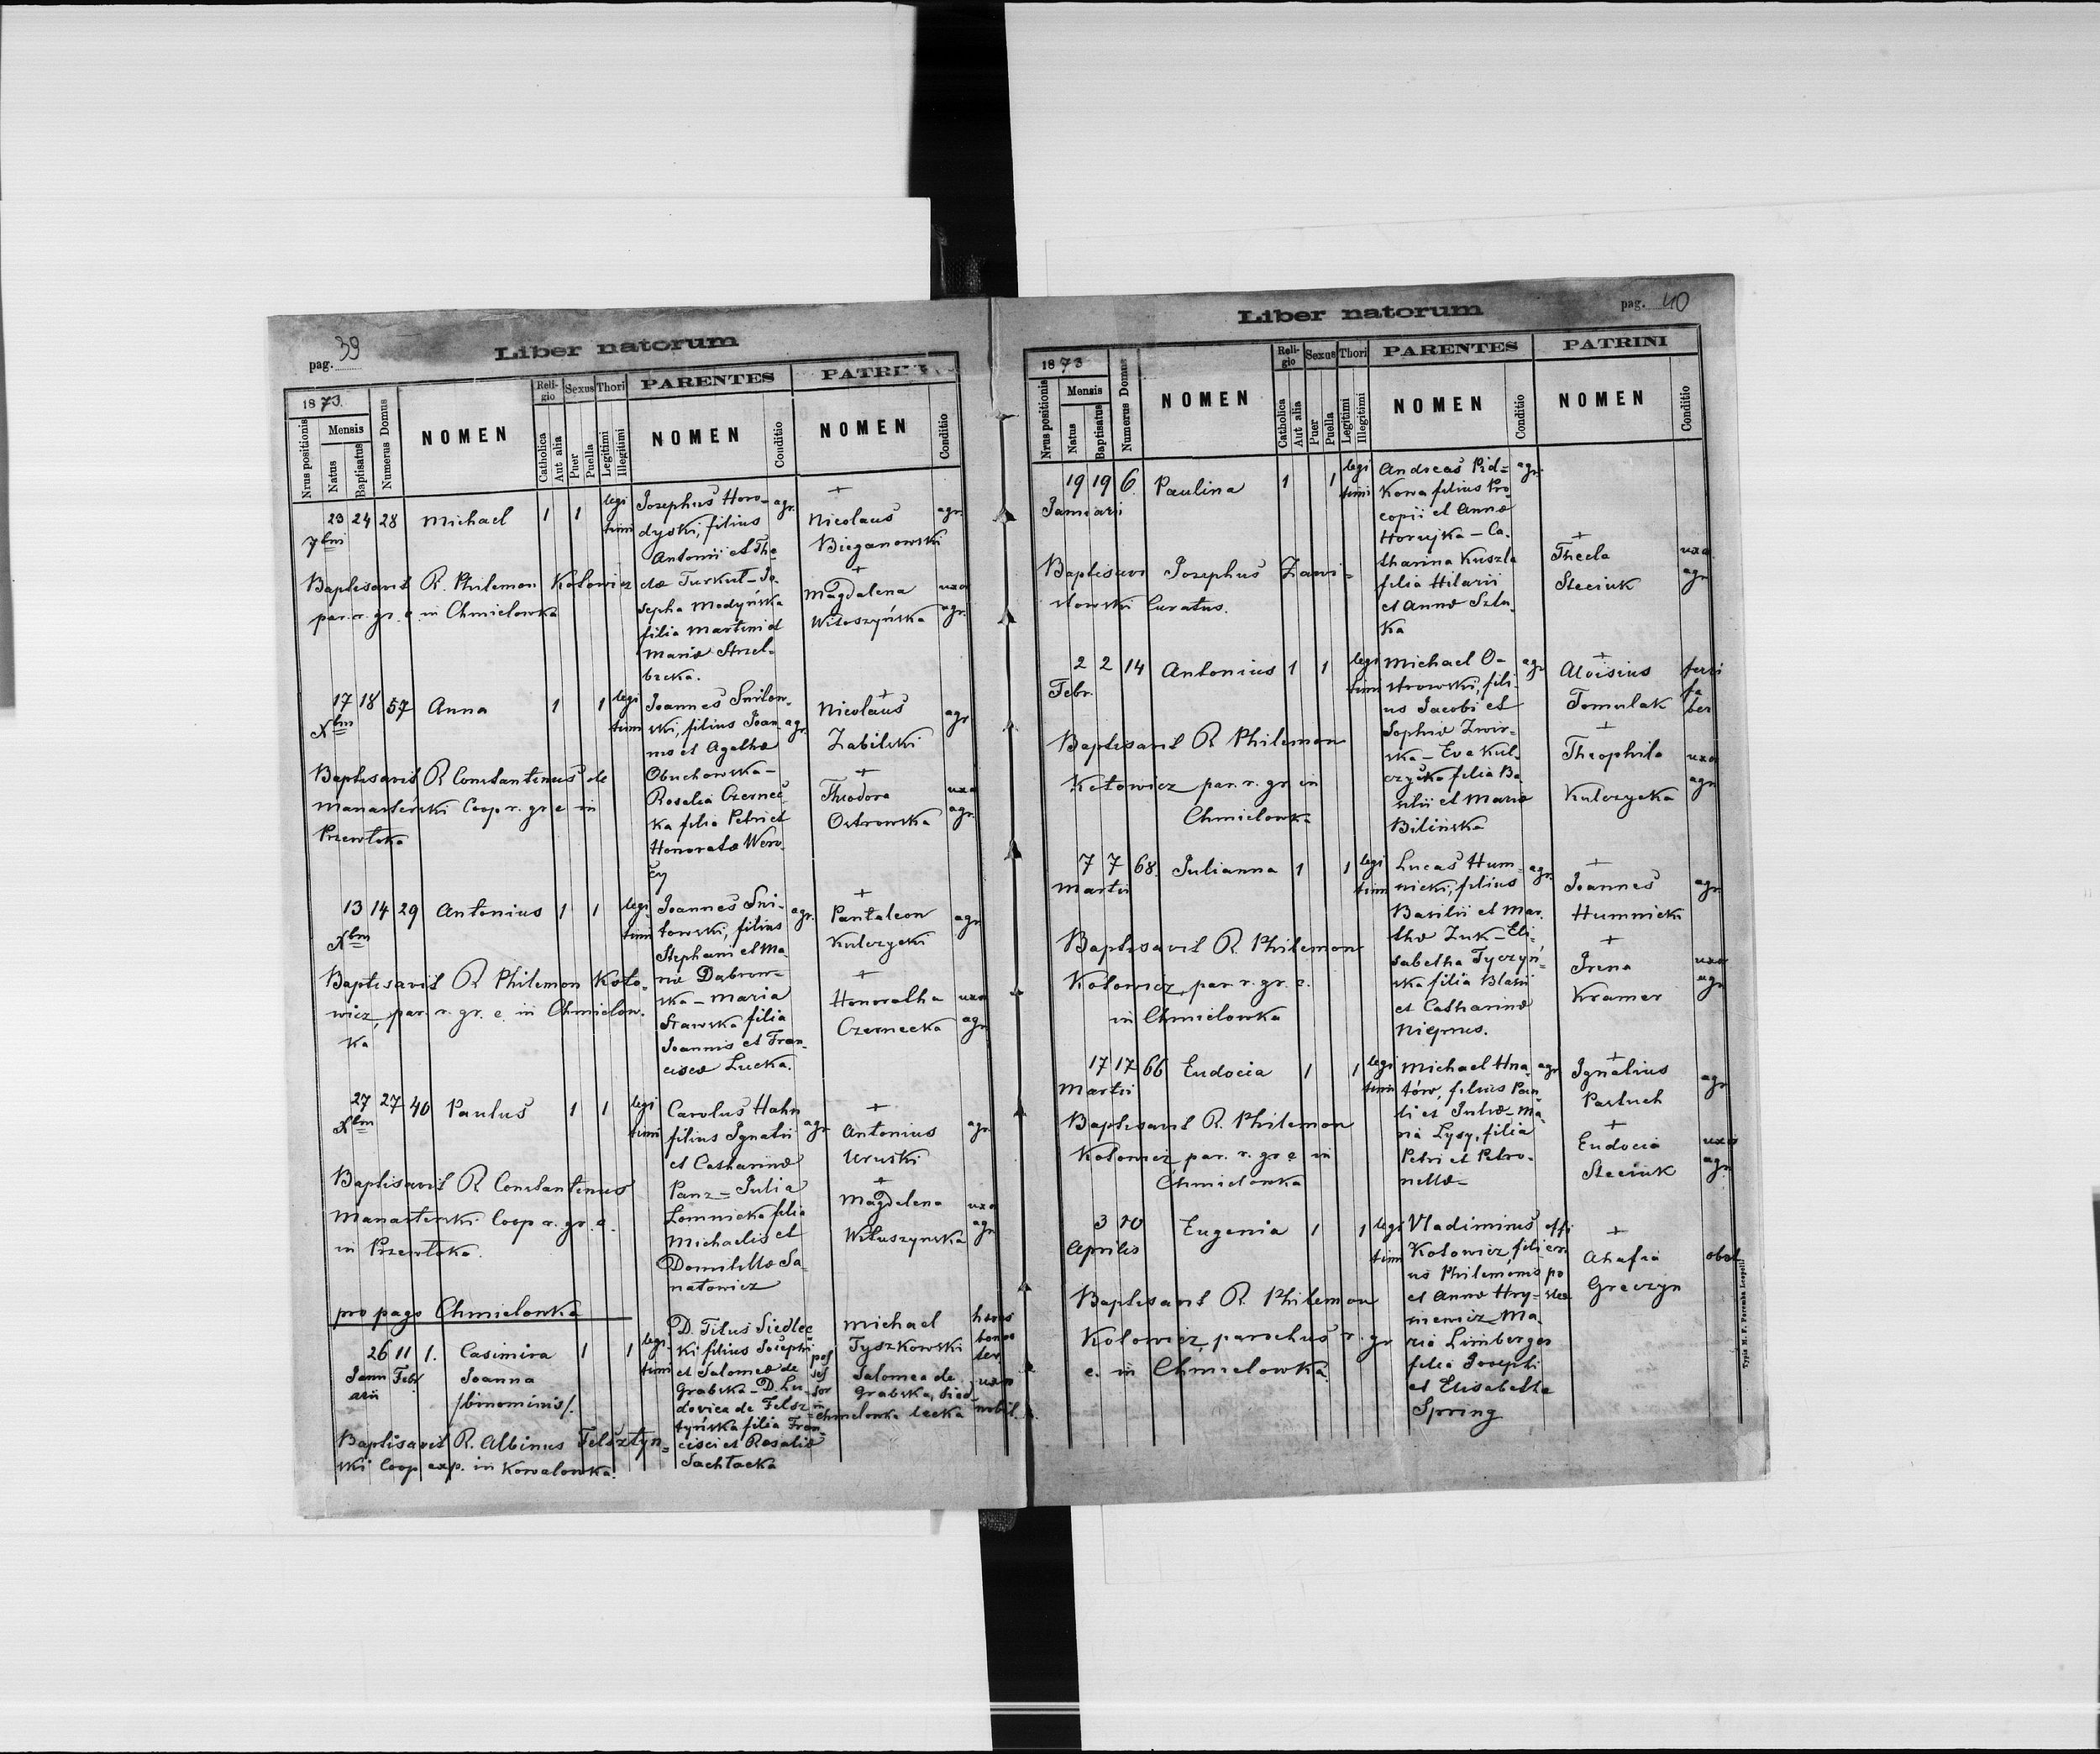 pag. 39
Liber natorum
1873.
Nrus positionis
Mensis
Natus
Baptisatus
Numerus Domus
NOMEN
Religio
Catholica
Aut alia
Sexus
Puer
Puella
Thori
Legitimi
Illegitimi
PARENTES
NOMEN
Conditio
PATRINI
NOMEN
Conditio
23 24 28 Michael 1 1 legi
timi
7bris
Josephus Horo-
dyski, filius
Antonii et The
clæ Turkuł - Jo.
sepha Modyńska
filia Martini et
Mariæ Strzel-
becka.
agr.
+
Nicolaus
Bieganowski
agr.
+
Magdalena
Witoszyńska
uxor
agr.
Baptisavit R. Philemon Kotowicz
par. r. gr. c. in Chmielowka
17 18 57 Anna 1 1 legi
timi
Xbris
Joannes
ski, filius Joan
nis et Agathæ
Obuchowska -
Rosalia Czernec
ka filia Petri et
Honoratæ
agr.
+
Nicolaus
Zabilski
agr.
+
Theodora
Ostrowska
uxor
agr.
Baptisavit R Constantinus de
Manasterski Coop r. gr c in
Przewłoka
13 14 29 Antonius 1 1 legi
timi
Xbris
Joannes Sni-
towski, filius
Stephani et Ma-
riæ Dąbrow-
ska - Maria
filia
Joannis et Fran-
ciscæ Lucka.
agr.
+
Pantaleon
Kulczycki
agr
+
Honoratha
Czernecka
uxor
agr
Baptisavit R Philemon Koto-
wicz, par. r. gr. c. in Chmielow-
ka
27 27 40 Paulus 1 1 legi
timi
Xbris
Carolus Hahn
filius Ignatii
et Catharinæ
Panz = Julia
Łomnicka filia
Michaelis et
Domitillæ Sa-
natowicz
agr
+
Antonius
Uruski
agr
+
Magdalena
Wituszynska
uxor
agr
Baptisavit R Constantinus
Manasterski Coop r. gr. c.
in Przewłoka.
pro pago Chmielowka
26 11 1. Casimira 1 1 legi
timi
Janu Febr
arii
Joanna
/binominis/.
D. Titus Siedlec
ki filius Josephi
et Salomeæ de
Grabska - D. Lu-
dovica de Felsz
tyńska filia Fran-
cisci et Rosaliæ
Sachłacka
pos
ses
sor
in
Chmielowka
Michael
Tyszkowski
Salomea de
Grabska, Sied-
lecka
uxor
nobil.
Baptisavit R. Albinus Felsztyn-
ski Coop exp. in Kowalowka.
Liber natorum
pag. 40
1873
Nrus positionis
Mensis
Natus
Baptisatus
Numerus Domus
NOMEN
Religio
Catholica
Aut alia
Sexus
Puer
Puella
Thori
Legitimi
Illegitimi
PARENTES
NOMEN
Conditio
PATRINI
NOMEN
Conditio
19 19 6. Paulina 1 1 legi
timi
Januarii
Andreas Pid=
kowa filius Pro
copii et Annæ
Horujka - Ca.
tharina Kuszla
filia Hilarii
et Annæ Sztu.
ka
agr.
+
Thecla
Steciuk
uxor
agr
Baptisavi Josephus Zawi-
stowski Curatus.
2 2 14 Antonius 1 1 legi
timi
Febr.
Michael O-
strowski, fili-
us Jacobi et
Sophiæ Zwir-
ska - Eva Kul-
czycka filia Ba-
silii et Mariæ
Bilińska
agr
+
Aloisius
Tomulak
ferri
fa
ber
+
Theophila
Kulczycka
uxor
agr
Baptisavit R Philemon
Kotowicz par. r. gr. in
Chmielowka
7 7 68. Julianna 1 1 legi
timi
Martii
Lucas Hum-
nicki, filius
Basilii et Mar.
thæ Żuk - Eli-
sabetha Tyczyń-
ska filia Blasii
et Catharinæ
agr.
+
Joannes
Humnicki
agr.
+
Irena
Kramer
uxor
agr
Baptisavit R. Philemon
Kotowicz, par. r. gr. c.
in Chmielowka
17 17 66 Eudocia 1 1 legi
timi
Martii
Michael Hna-
tów, filius Pau-
li et Juliæ - Ma
ria Łysy, filia
Petri et Petro-
nellæ -
agr
+
Ignatius
Pastuch
agr
+
Eudocia
Steciuk
uxor
agr.
Baptisavit R. Philemon
Kotowicz par. r. gr c in
Chmielowka
3 10 Eugenia 1 1 legi
timi
Aprilis
Vladimirus
Kotowicz fili
us Philemonis
et Annæ Hry-
niewicz Ma-
ria Limberger
filia Josephi
et Elisabetha
Spring
offi
po
+
Ahafia
Greczyn
obst
Baptisavit R. Philemon
Kotowicz, parochus r. gr
c. in Chmielowka.
Typis M. F. Poremba Leopoli